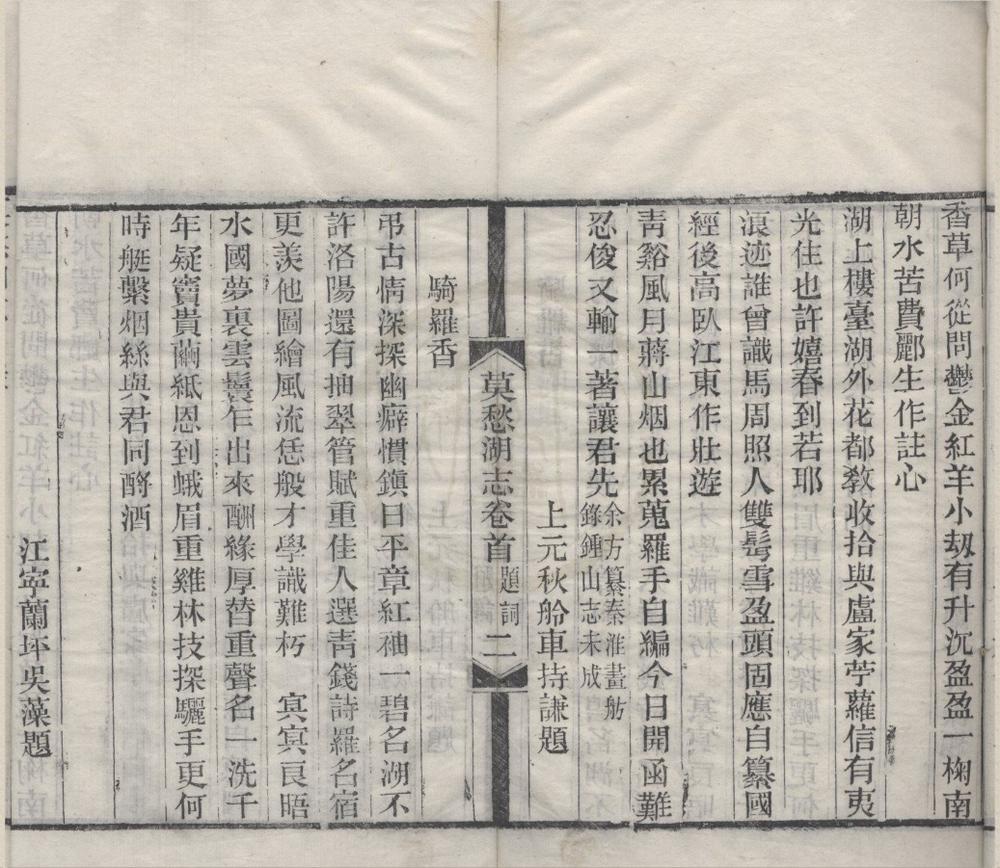 香草何從問鬱金紅羊小刼有升沉盈盈一掬南
朝水苦費酈生作註心
湖上樓臺湖外花都教收拾與盧家苧蘿信有夷
光住也許嬉春到若耶
浪迹誰曾識馬周照人雙髩雪盈頭固應自纂國
經後高臥江東作壯遊
靑谿風月蔣山烟也累蒐羅手自編今日開函難
忍俊又輸一著讓君先余方纂秦淮畫舫
錄鍾山志未成
上元秋舲車持謙題
莫愁湖志卷首 題詞 二
騎羅香
弔古情深探幽癖慣鎭日平章紅袖一碧名湖不
許洛陽還有抽翠管賦重佳人選靑錢詩羅名宿
更羨他圖繪風流恁般才學識難朽 寘寘良晤
水國夢裏雲鬟乍出來酬緣厚替重聲名一洗千
年疑竇貴繭紙恩到蛾眉重雞林技探驪手更何
時艇繫烟絲與君同酹酒
江寧蘭坪吳藻題